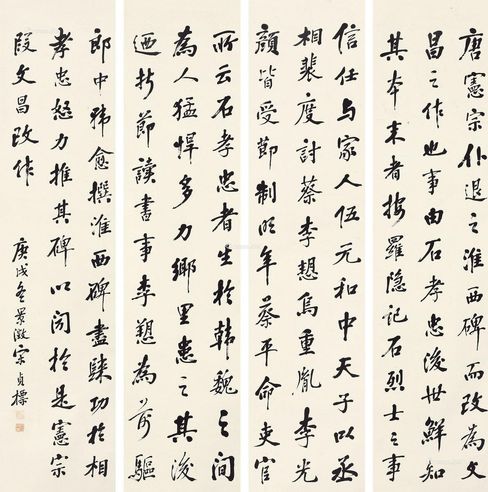 唐憲宗仆退之淮西碑而改為文
昌之作也事由石孝忠後世鮮知
其本末者按羅隱記石烈士之事
信任与家人伍元和中天子以丞
相裴度討蔡李愬烏重胤李光
顏皆受節制明年蔡平命吏官
所云石孝忠者生於韓魏之間
為人猛悍多力鄉里患之其後
迺折節讀書事李愬為前驅
郎中韩愈撰淮西碑盡歸功於相
孝忠怒力推其碑以聞於是憲宗
段文昌改作
庚戌冬景澂宗貞標